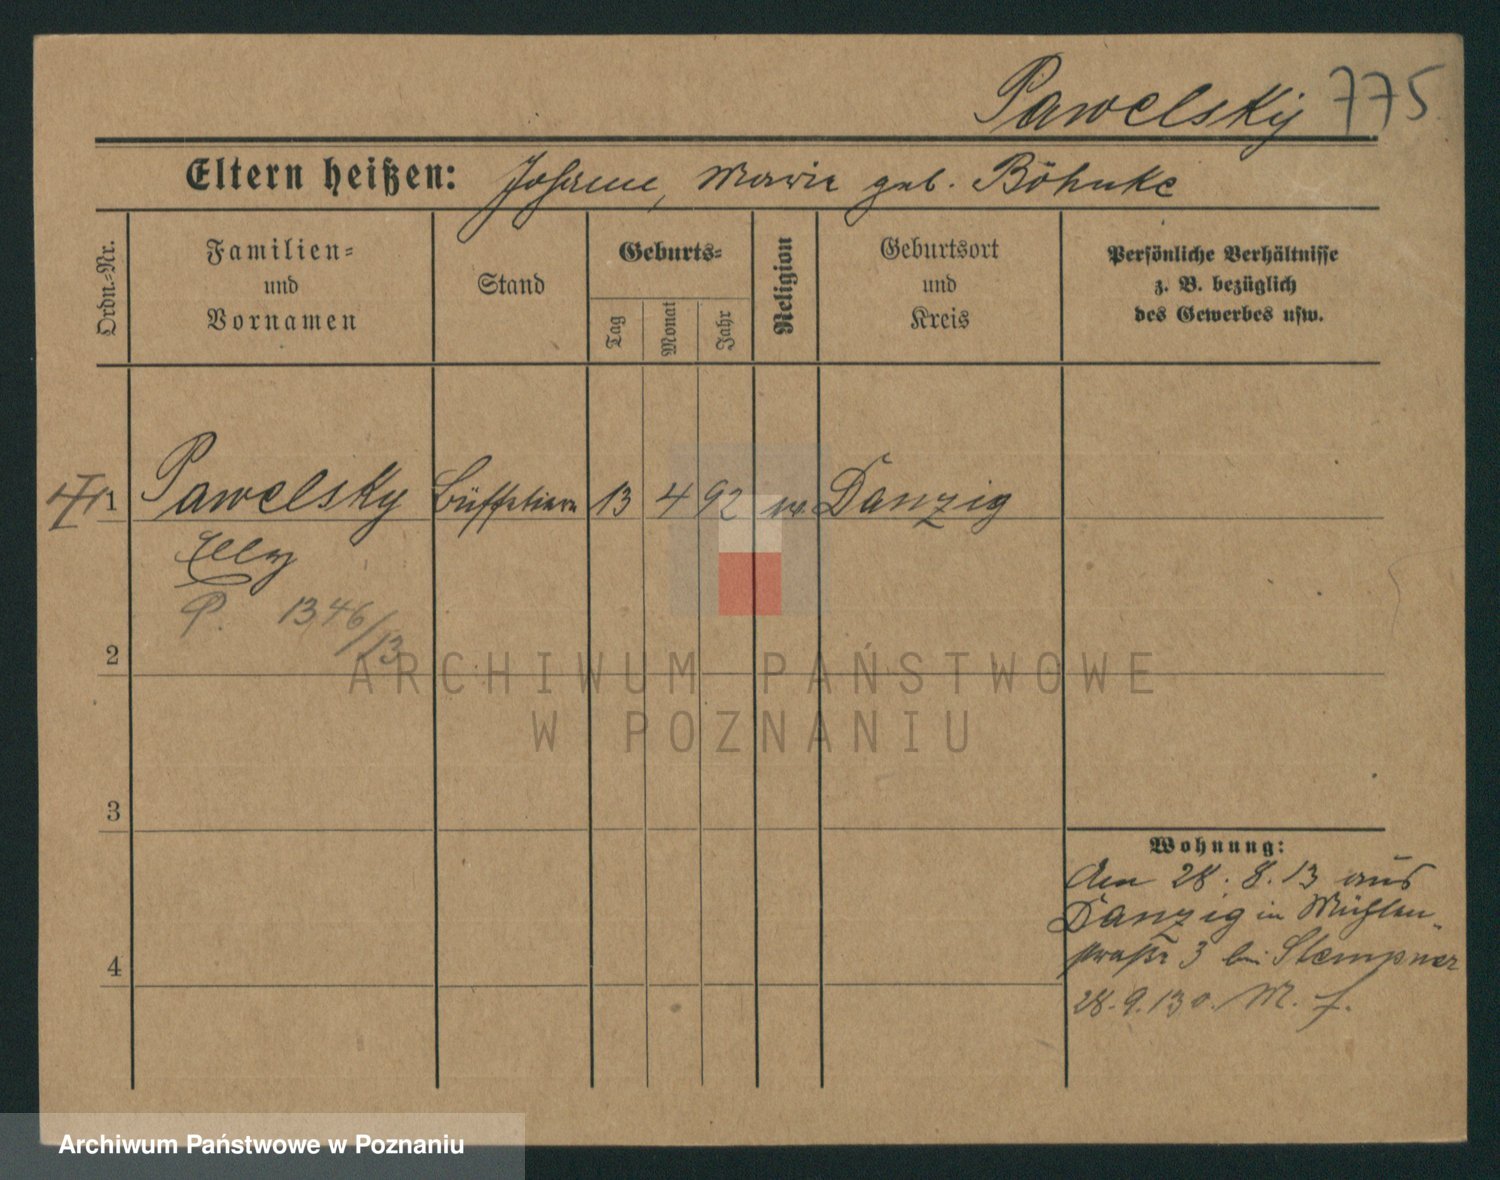 Pawelsky 775
Eltern heißen: Johann, Marie geb. Böhnke
Ordn.-Nr.
Familien-
und
Vornamen
Stand
Geburts-
Tag
Monat
Jahr
Religion
Geburtsort
und
Kreis
Persönliche Verhältnisse
z. B. bezüglich
des Gewerbes usw.
1 Pawelsky Büffetiere 13 4 92 Danzig
Elly
P. 1346/13
2
3
4
Wohnung:
Am 28. 8. 13 aus
Danzig in Mühlen-
straße 3 bei Stempner
28. 9. 13 o. M. f.
ARCHIWUM PAŃSTWOWE
W POZNANIU
Archiwum Państwowe w Poznaniu